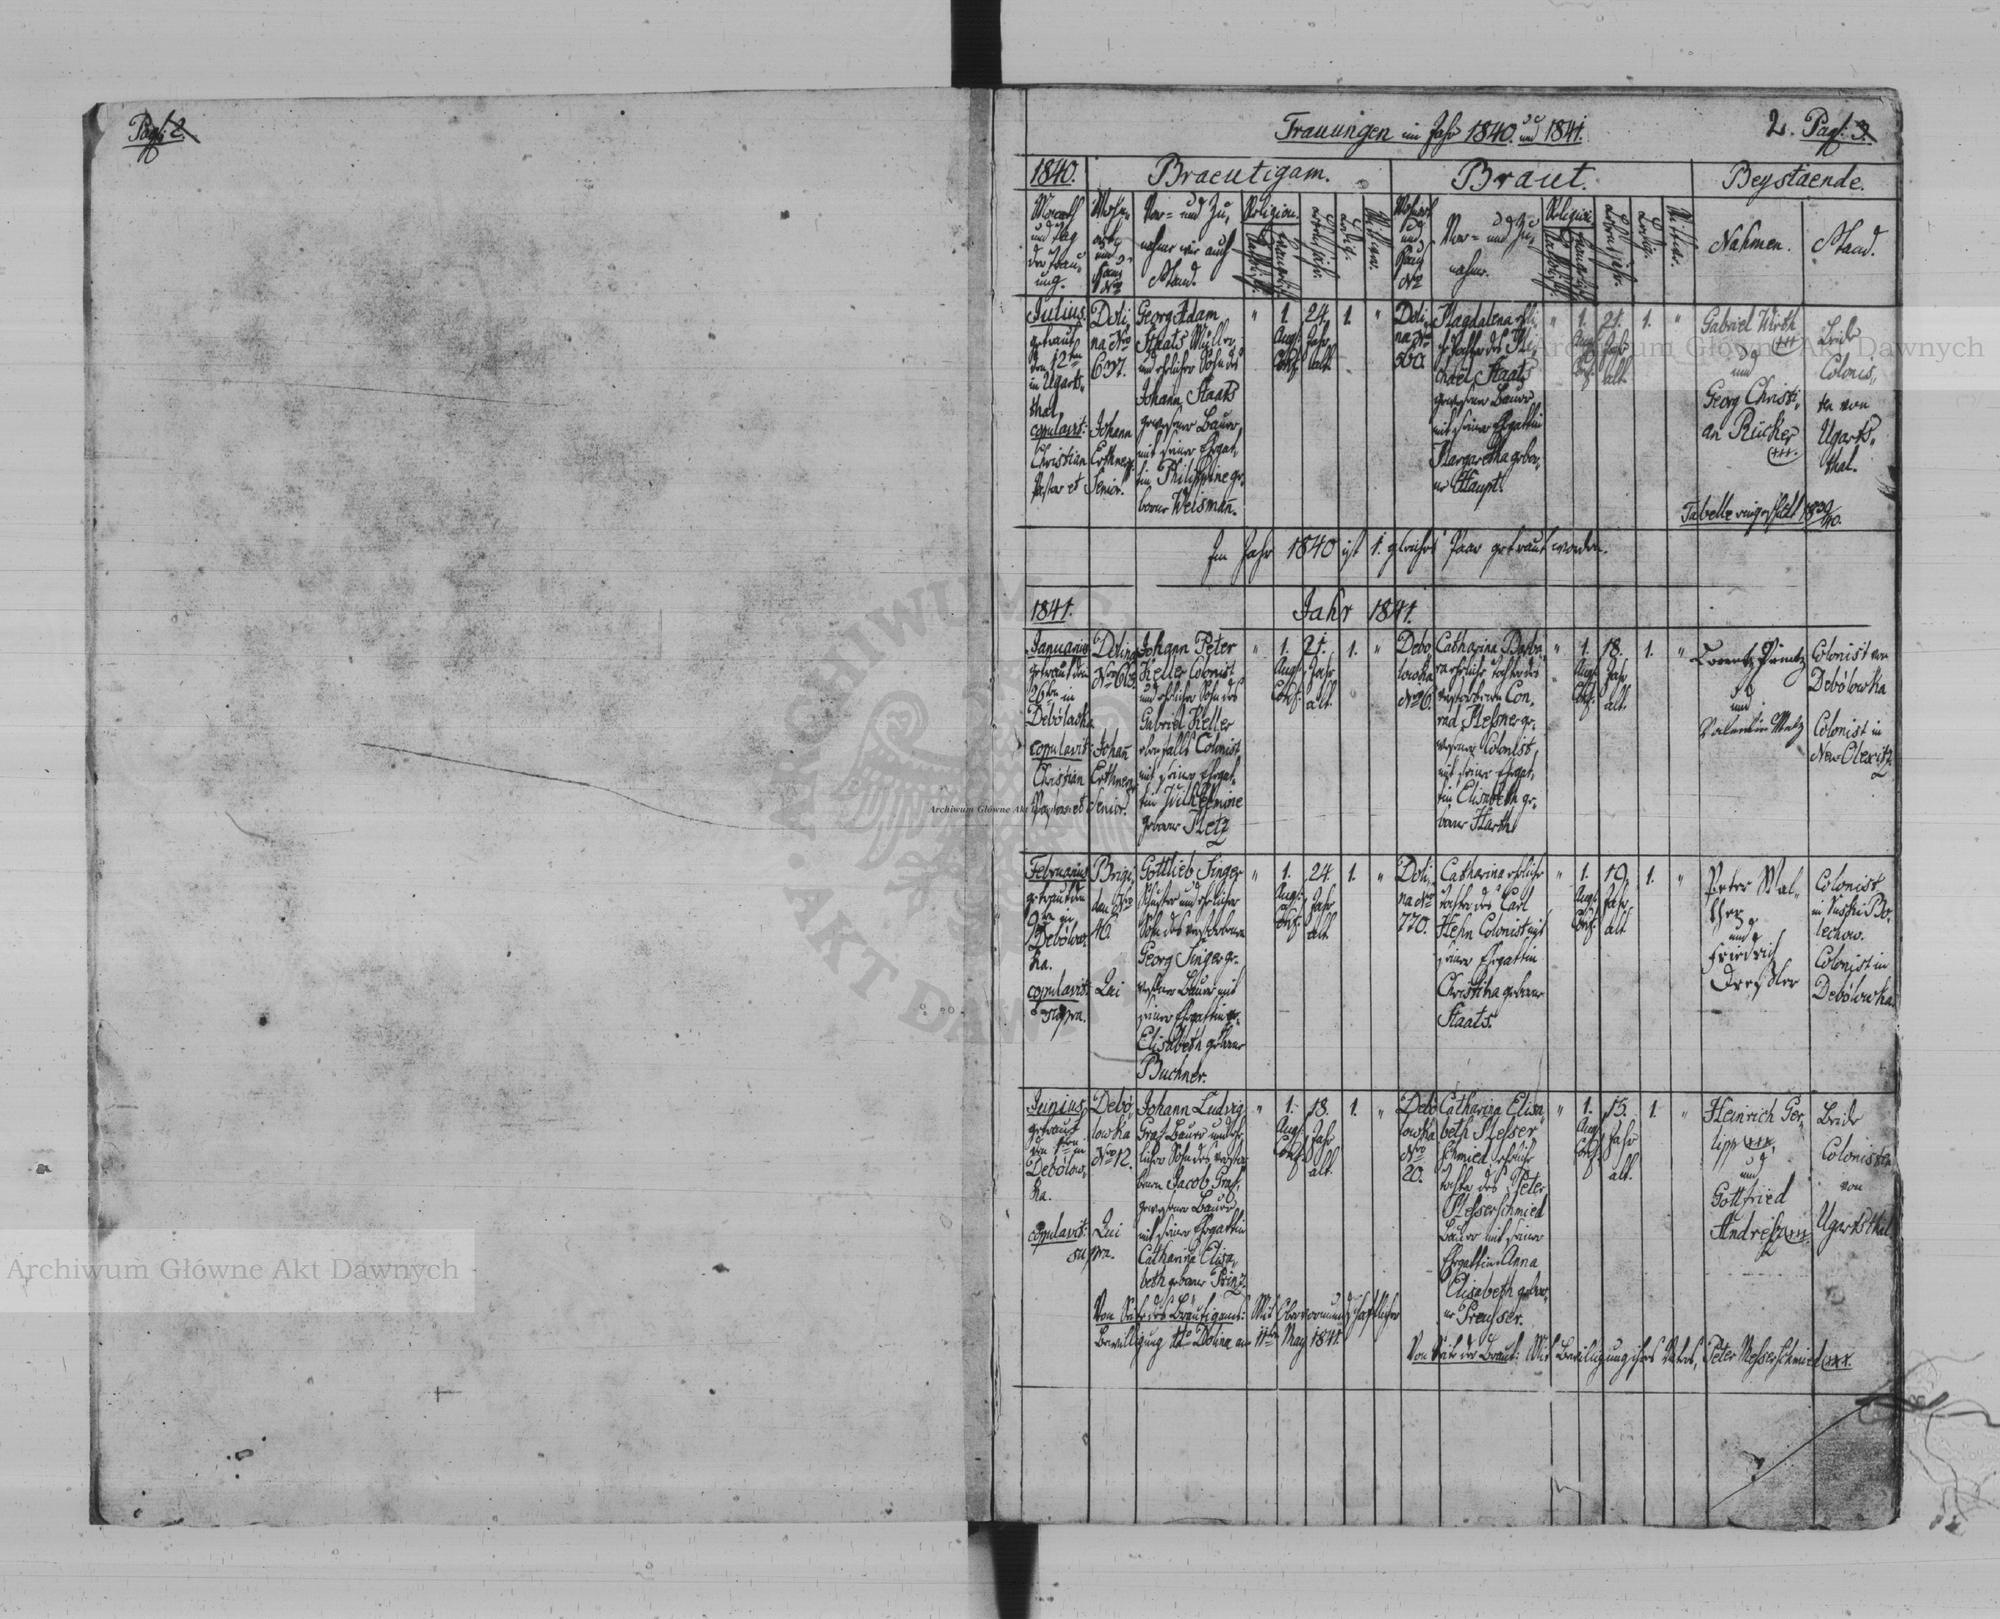 Pag: 2.
Trauungen im Jahr 1840. und 1841.
2. Pag: 3.
1840.
Braeutigam.
Braut.
Beystaende.
Monath und Tag der Trauung.
Wohnort und Haus Nro
Vor- und Zunahme wie auch Stand.
Religion.
Katholisch
Evangelisch
Lebensjahr.
Ledig.
Wittwer.
Wohnort und Haus Nro
Vor- und Zunahme.
Religion
Katholisch
Evangelisch
Lebensjahr.
Ledig.
Nahmen.
Stand.
Julius.
getraut
den 12ten
in Ugarts-
thal.
copulavit:
Christian
Pastor et
Doli,
na Nro
637.
Johann
Erthner
Senior.
Georg Adam
Staats Müller,
und ehelicher Sohn des
Johann Staats
gewesener Bauer,
mit seiner Ehegat,
tin Philippine ge,
borne Weismañ.
" 1. 24. 1. "
Augs. Jahr
Conf. alt.
Doli,
na Nro
560.
Magdalena eheli,
che Tochter des Mi,
chael Staats
gewesener Bauer
mit seiner Ehegattin
Margaretha gebor,
ne Haupt.
" 1. 21. 1. "
Aug. Jahr
Conf. alt.
Gabriel Wirth
+++
und
Georg Christi,
an Rücker
+++.
Beide
Colonis,
ten von
Ugarts,
thal.
Tabelle eingeschickt 1839/40.
Im Jahr 1840 ist 1. Paar getraut worden.
1841.
Jahr 1841.
Januarius
getraut den
26ten in
Debólowka
copulavit:
Christian
Pastor et
Dolina
Nro 663.
Johañ
Erthner
Senior.
Johann Peter
Keller Colonist
und ehelicher Sohn des
Gabriel Keller
ebenfalls Colonist
mit seiner Ehegat,
tin Wilhelmine
geborne Metz
" 1. 21. 1. "
Augs. Jahr
Conf. alt.
Debó,
lowka
Nro 6.
Catharina Barba,
ra eheliche Tochter des
verstorbenen Con,
rad Messner ge,
wesener Colonist,
mit seiner Ehegat,
tin Elisabeth ge,
borne Harth
" 1. 18. 1. "
Augs. Jahr
Conf. alt.
und
Valentin Metz
Colonist von
Debólowka
Colonist in
New Olexitz
Februarius
getraut den
9ten in
Debólow,
ka.
copulavit:
supra.
Brigi,
dau Nro
46.
Qui
Gottlieb Singer
Schuster und ehelicher
Sohn des verstorbenen
Georg Singer ge,
wesener Bauer mit
seiner Ehegattin
Elisabeth geborne
Buchner.
" 1. 24. 1. "
Augs. Jahr
Conf. alt.
Doli,
na Nro
770.
Catharina eheliche
Tochter des Carl
Hehn Colonist mit
seiner Ehegattin
Christina geborne
Staats.
" 1. 19. 1. "
Augs. Jahr
Conf. alt
Peter Wal-
ther
und
Friedrich
Colonist
in Ruski Bo,
lechow.
Colonist in
Debólowka.
Junius
getraut
den 1ten in
Debólow,
ka.
copulavit: Qui
supra.
Debó,
lowka
Nro 12.
Johann Ludvig
Graf Bauer und ehe,
licher Sohn des verstor,
benen Jacob Graf,
gewesener Bauer
mit seiner Ehegattin
Catharina Elisa,
beth geborne Prinz.
" 1. 18. 1. "
Augs. Jahr
Conf. alt.
Debó,
lowka
Nro
20.
Catharina Elisa,
beth Messer,
schmied eheliche
Tochter des Peter
Messerschmied
Bauer mit seiner
Ehegattin Anna
Elisabeth gebor,
ne Preusser.
" 1. 15. 1. "
Augs. Jahr
Conf. alt.
Heinrich Ger,
lipp +++.
und
Gottfried
Andres +++.
Beide
Colonisten
von
Ugartsthal.
Von Seite des Bräutigams: Mit Obervormundschaftlicher
Bewilligung dto Dolina am 11ten May 1841.
Von Seite der Braut: Mit Bewilligung ihres Vaters, Peter Messerschmied +++.
Archiwum Główne Akt Dawnych
Archiwum Główne Akt Dawnych
Archiwum Główne Akt Dawnych
ARCHIWUM
AKT DAWNYCH